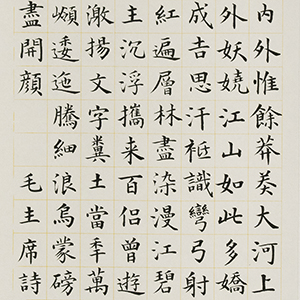 内外惟餘莽莽大河上
外妖嬈江山如此多嬌
成吉思汗衹識彎弓射
紅遍層林盡染漫江碧
主沉浮攜来百侣曾遊
激揚文字糞土當秊萬
逶迤騰細浪烏蒙磅
盡開顔 毛主席詩